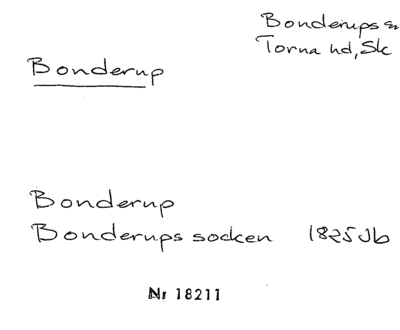 Bonderups sn
Torna hd, Sk
Bonderup
Bonderup
Bonderups socken 1825 Jb
Nr 18211